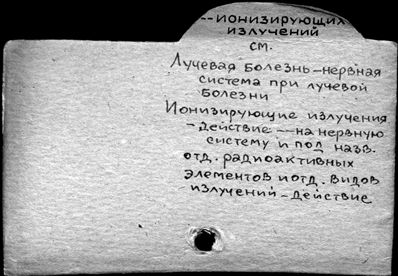 --ионизирующих
излучений
см.
Лучевая болезнь-нервная
система при лучевой
болезни
Ионизирующие излучения
-действие--на нервную
систему и под назв.
отд. радиоактивных
элементов и отд. видов
излучений-действие